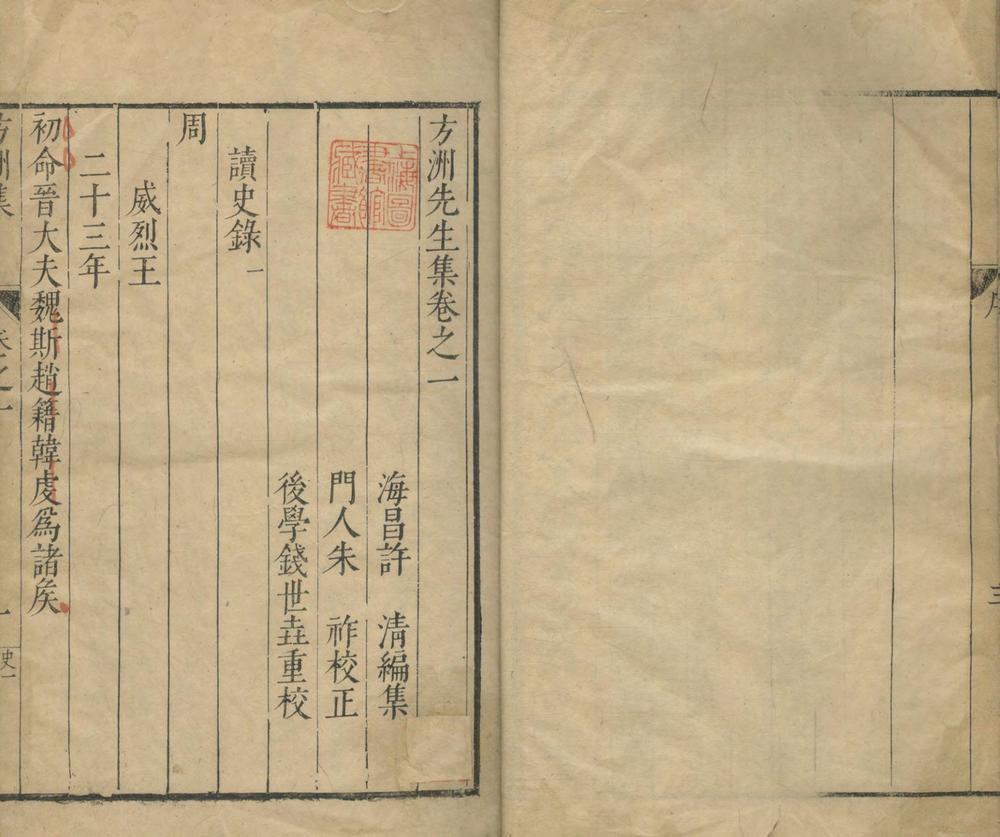 方洲先生集卷之一
海昌許　清編集
門人朱　祚校正
後學錢世垚重校
上海圖書館藏書
讀史錄一
周
威烈王
二十三年
初命晉大夫魏斯趙籍韓虔爲諸矦
方洲集
卷之一
一
史一